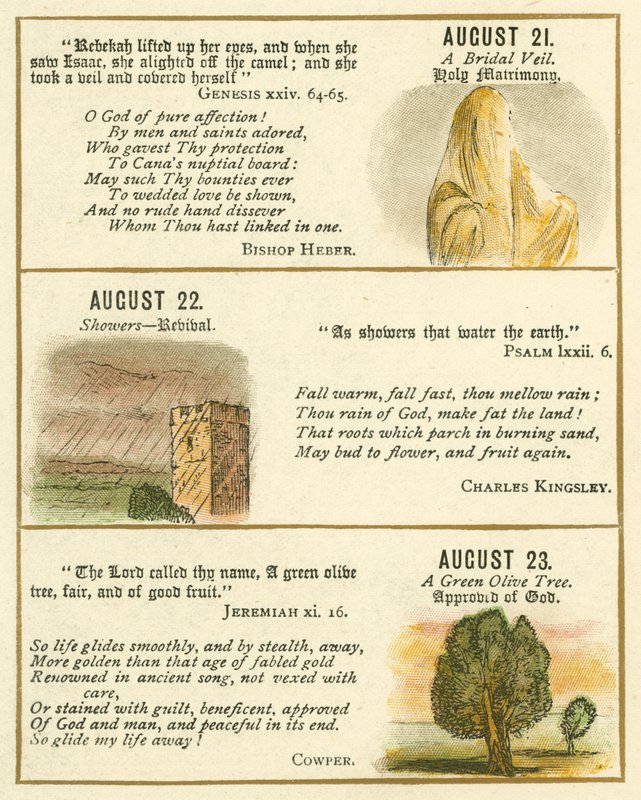 "Rebekah lifted up her eyes, and when she
saw Isaac, she alighted off the camel; and she
took a veil and covered herself"
GENESIS xxiv. 64-65.
O God of pure affection!
By men and saints adored,
Who gavest Thy protection
To Cana's nuptial board:
May such Thy bounties ever
To wedded love be shown,
And no rude hand dissever
Whom Thou hast linked in one.
BISHOP HEBER.
AUGUST 21.
A Bridal Veil.
Holy Matrimony.
AUGUST 22.
Showers—Revival.
"As showers that water the earth."
PSALM lxxii. 6.
Fall warm, fall fast, thou mellow rain;
Thou rain of God, make fat the land!
That roots which parch in burning sand,
May bud to flower, and fruit again.
CHARLES KINGSLEY.
"The Lord called thy name, A green olive
tree, fair, and of good fruit."
JEREMIAH xi. 16.
So life glides smoothly, and by stealth, away,
More golden than that age of fabled gold
Renowned in ancient song, not vexed with
care,
Or stained with guilt, beneficent, approved
Of God and man, and peaceful in its end.
So glide my life away!
COWPER.
AUGUST 23.
A Green Olive Tree.
Approved of God.